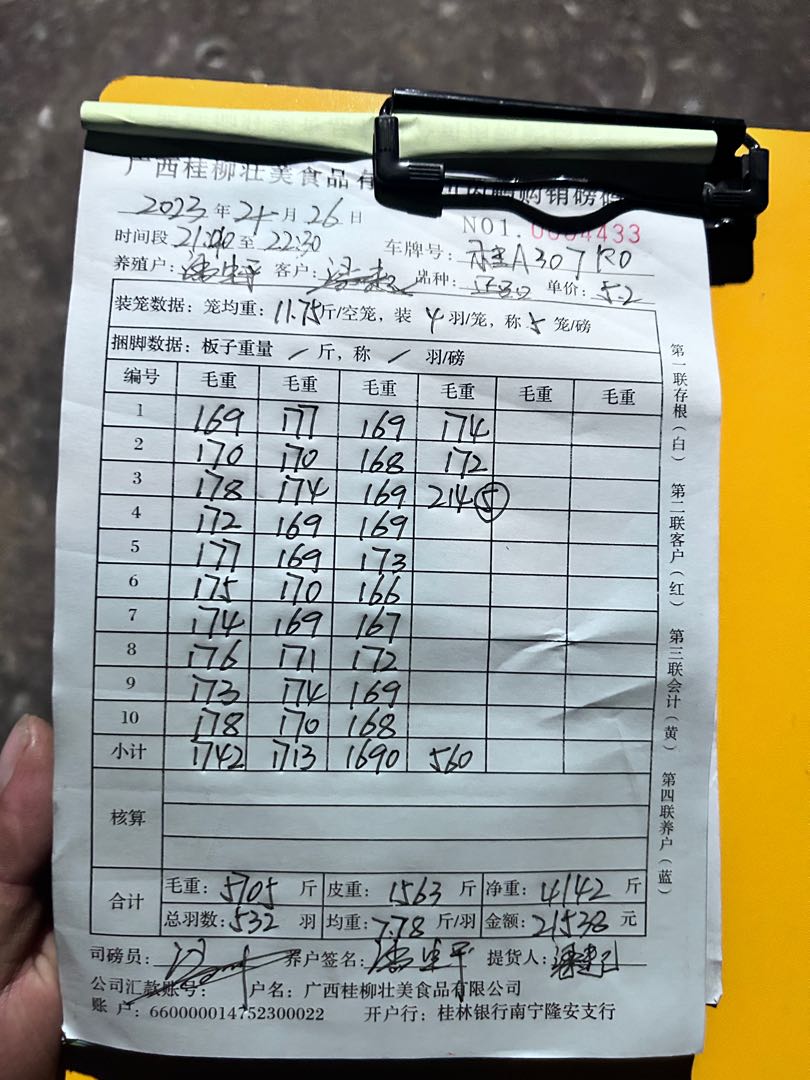 广西桂柳壮美食品有 购销磅码
2023 年 24 月 26 日 NO1. 0004433
时间段 21:00 至 22:30 车牌号: 桂A307R0
养殖户: 客户: 品种: 单价: 5.2
装笼数据: 笼均重: 11.75斤/空笼, 装 4 羽/笼, 称 5 笼/磅
捆脚数据: 板子重量 / 斤, 称 / 羽/磅
编号 毛重 毛重 毛重 毛重 毛重 毛重
1 169 177 169 174
2 170 170 168 172
3 178 174 169 214⑤
4 172 169 169
5 177 169 173
6 175 170 166
7 174 169 167
8 176 171 172
9 173 174 169
10 178 170 168
小计 1742 1713 1690 560
核算
合计 毛重: 5705 斤 皮重: 1563 斤 净重: 4142 斤
总羽数: 532 羽 均重: 7.78 斤/羽 金额: 21538 元
司磅员: 养户签名: 提货人:
公司汇款账号: 户名: 广西桂柳壮美食品有限公司
账 户: 660000014752300022 开户行: 桂林银行南宁隆安支行
第一联存根(白) 第二联客户(红) 第三联会计(黄) 第四联养户(蓝)